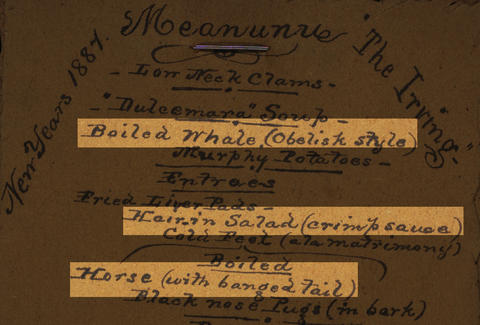 Meanunu
"The Irving"
New Years 1887.
- Low Neck Clams -
- "Dulcemara" Soup -
Boiled Whale (Obelisk style)
Murphy Potatoes -
Entroes
Fried Liver Pads -
Hair-in Salad (crimp sauce)
Cold Feet (a la matrimony)
Boiled
Horse (with banged tail)
Black nose Pugs (in bark)